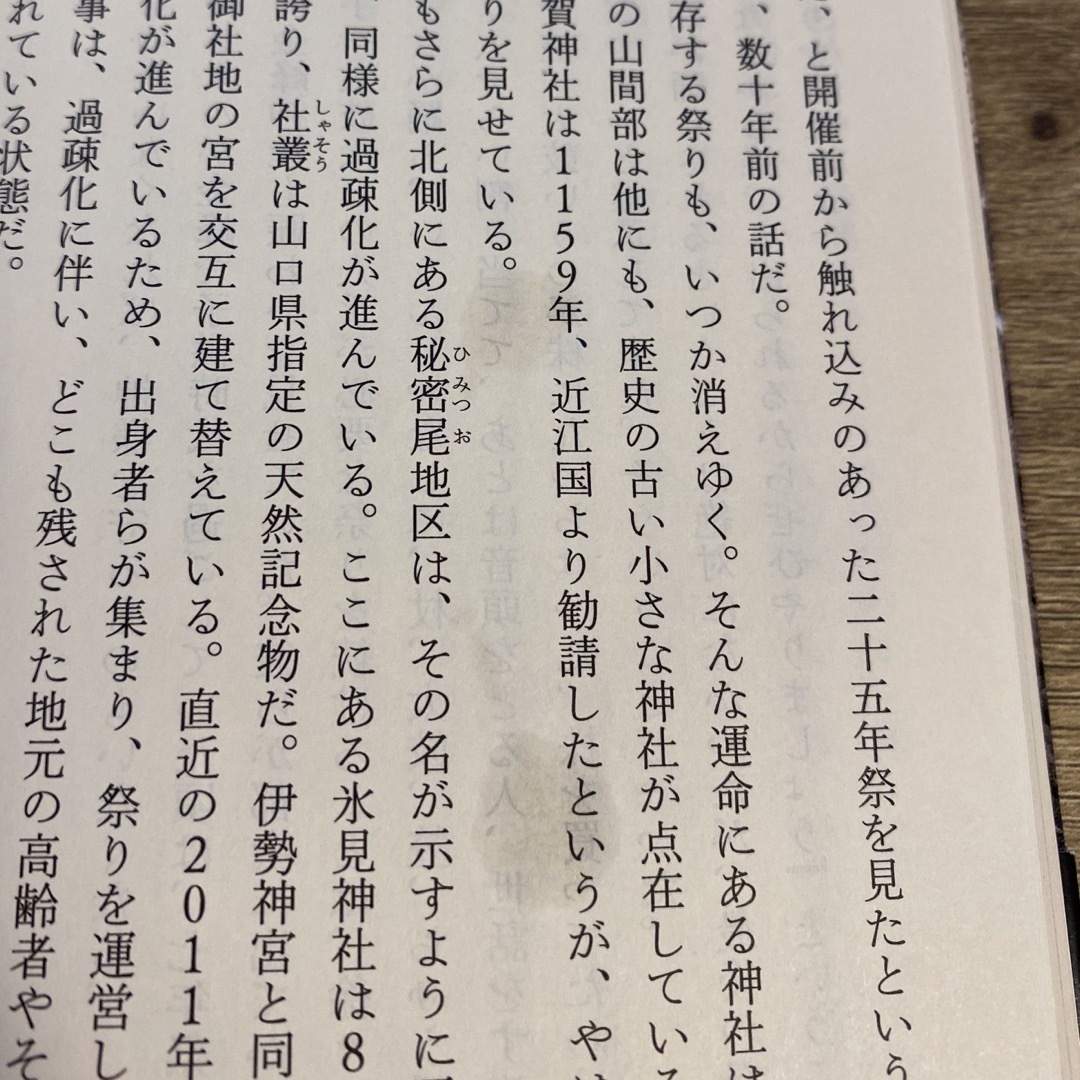 、と開催前から触れ込みのあった二十五年祭を見たという
、数十年前の話だ。
存する祭りも、いつか消えゆく。そんな運命にある神社は
の山間部は他にも、歴史の古い小さな神社が点在している
賀神社は1159年、近江国より勧請したというが、やは
りを見せている。
もさらに北側にある秘密尾地区は、その名が示すように
ひみつお
同様に過疎化が進んでいる。ここにある氷見神社は8
誇り、社叢は山口県指定の天然記念物だ。伊勢神宮と同
しゃそう
御社地の宮を交互に建て替えている。直近の2011年
化が進んでいるため、出身者らが集まり、祭りを運営し
事は、過疎化に伴い、どこも残された地元の高齢者やそ
れている状態だ。